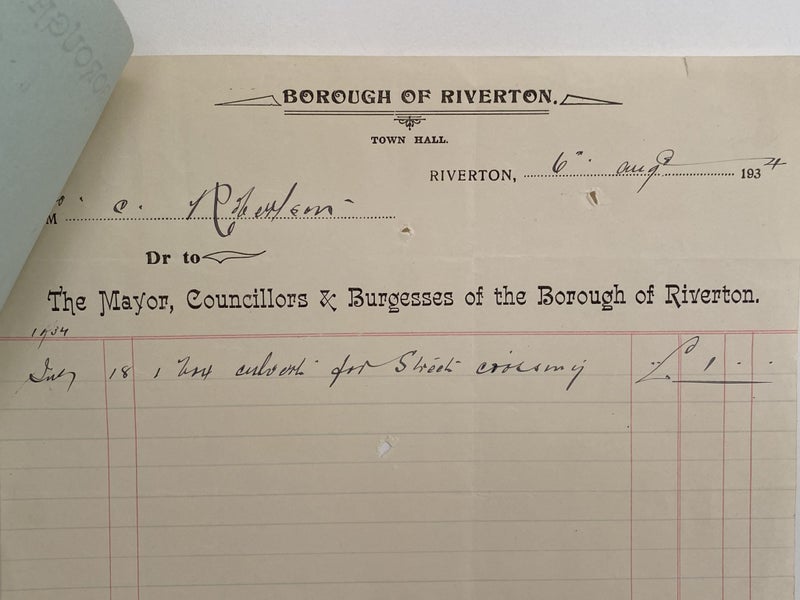 BOROUGH
BOROUGH OF RIVERTON.
TOWN HALL.
RIVERTON, 6th Augt 1934
Mr C. Robertson
Dr to
The Mayor, Councillors & Burgesses of the Borough of Riverton.
1934
July 18 1 box culvert for Street crossing £ 1 . .